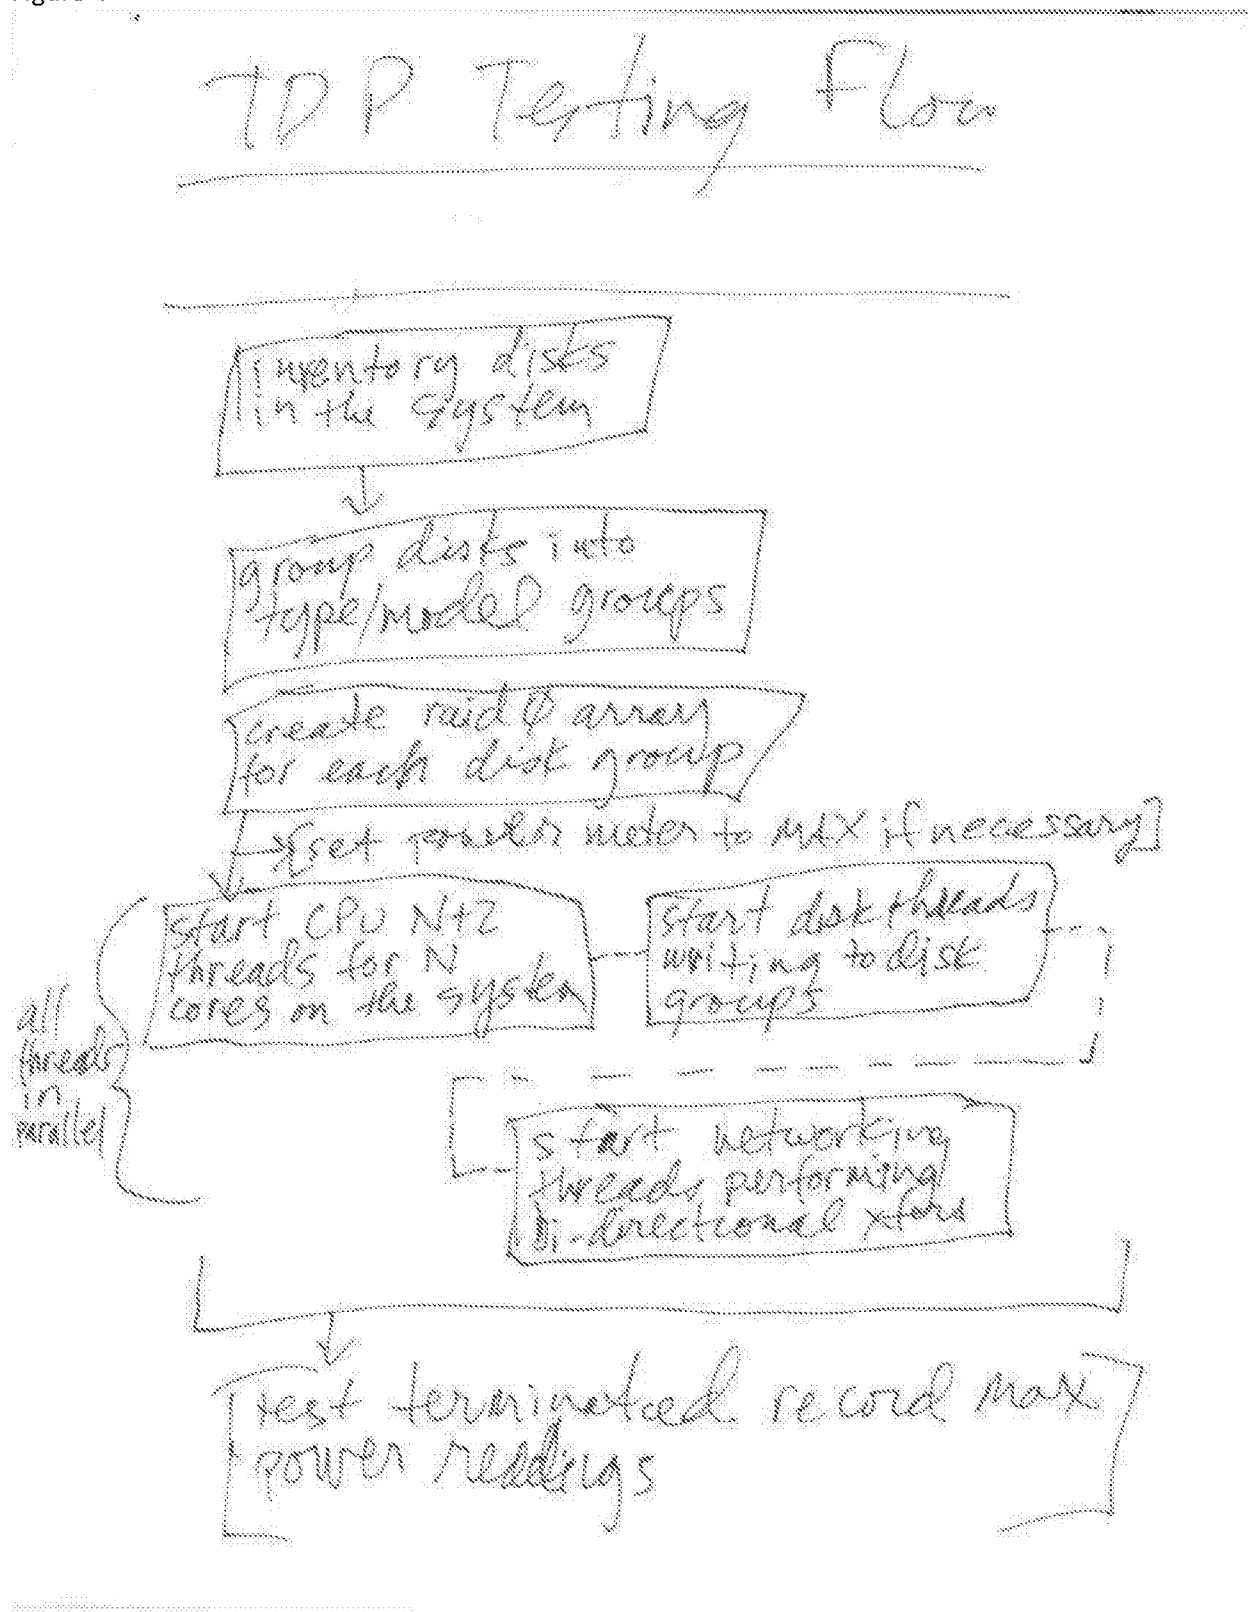 TDP Testing Flow
inventory disks
in the system
group disks into
type/model groups
create raid 0 array
for each disk group
[set power meter to MAX if necessary]
start CPU N+2
threads for N
cores on the system
start disk threads
writing to disk
groups
all
threads
in
parallel
start networking
threads performing
bi-directional xfers
test terminated record max
power readings